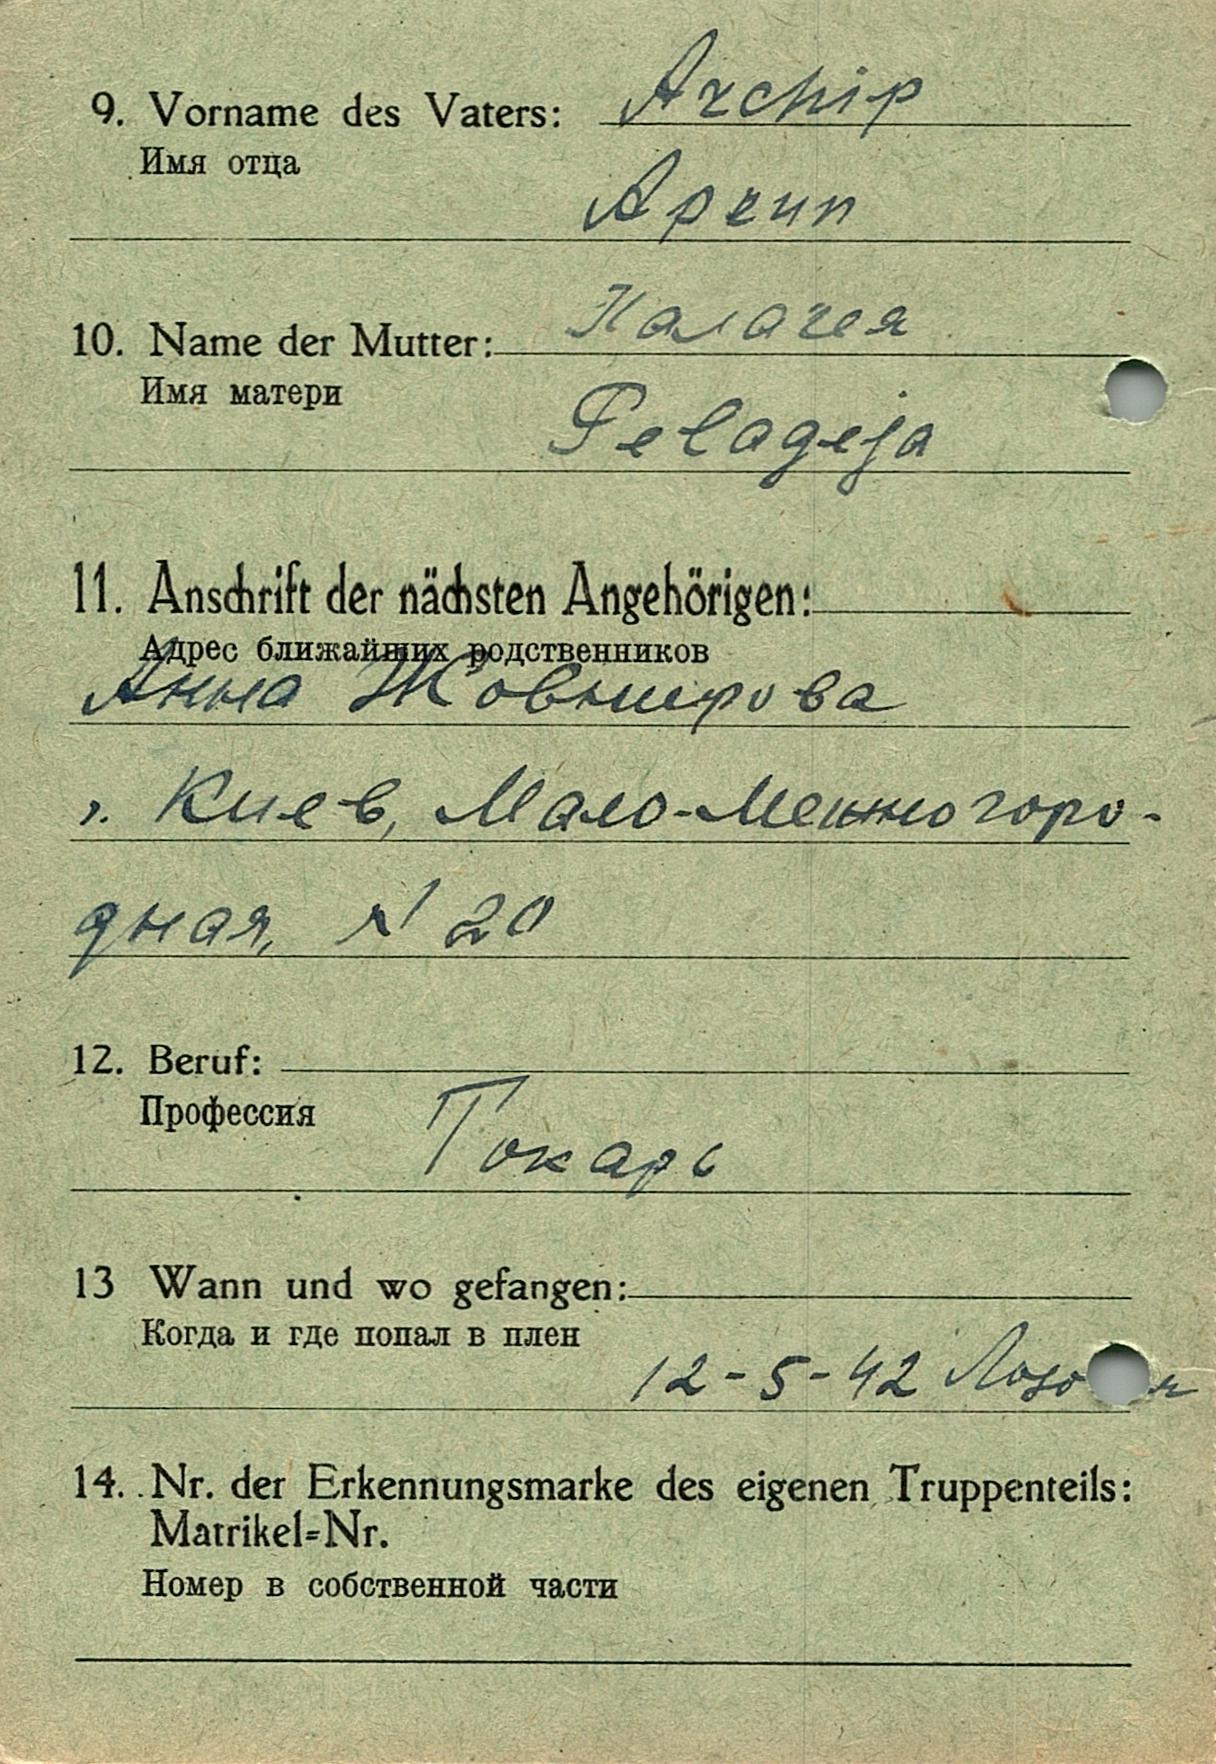 9. Vorname des Vaters: Archip
Имя отца
Архип
10. Name der Mutter: Палагея
Имя матери
Pelageja
11. Anschrift der nächsten Angehörigen:
Адрес ближайших родственников
Анна Жовнирова
г. Киев, Мало-Межногоро-
дная, № 20
12. Beruf:
Профессия
Токарь
13 Wann und wo gefangen:
Когда и где попал в плен
12-5-42
14. Nr. der Erkennungsmarke des eigenen Truppenteils:
Matrikel=Nr.
Номер в собственной части